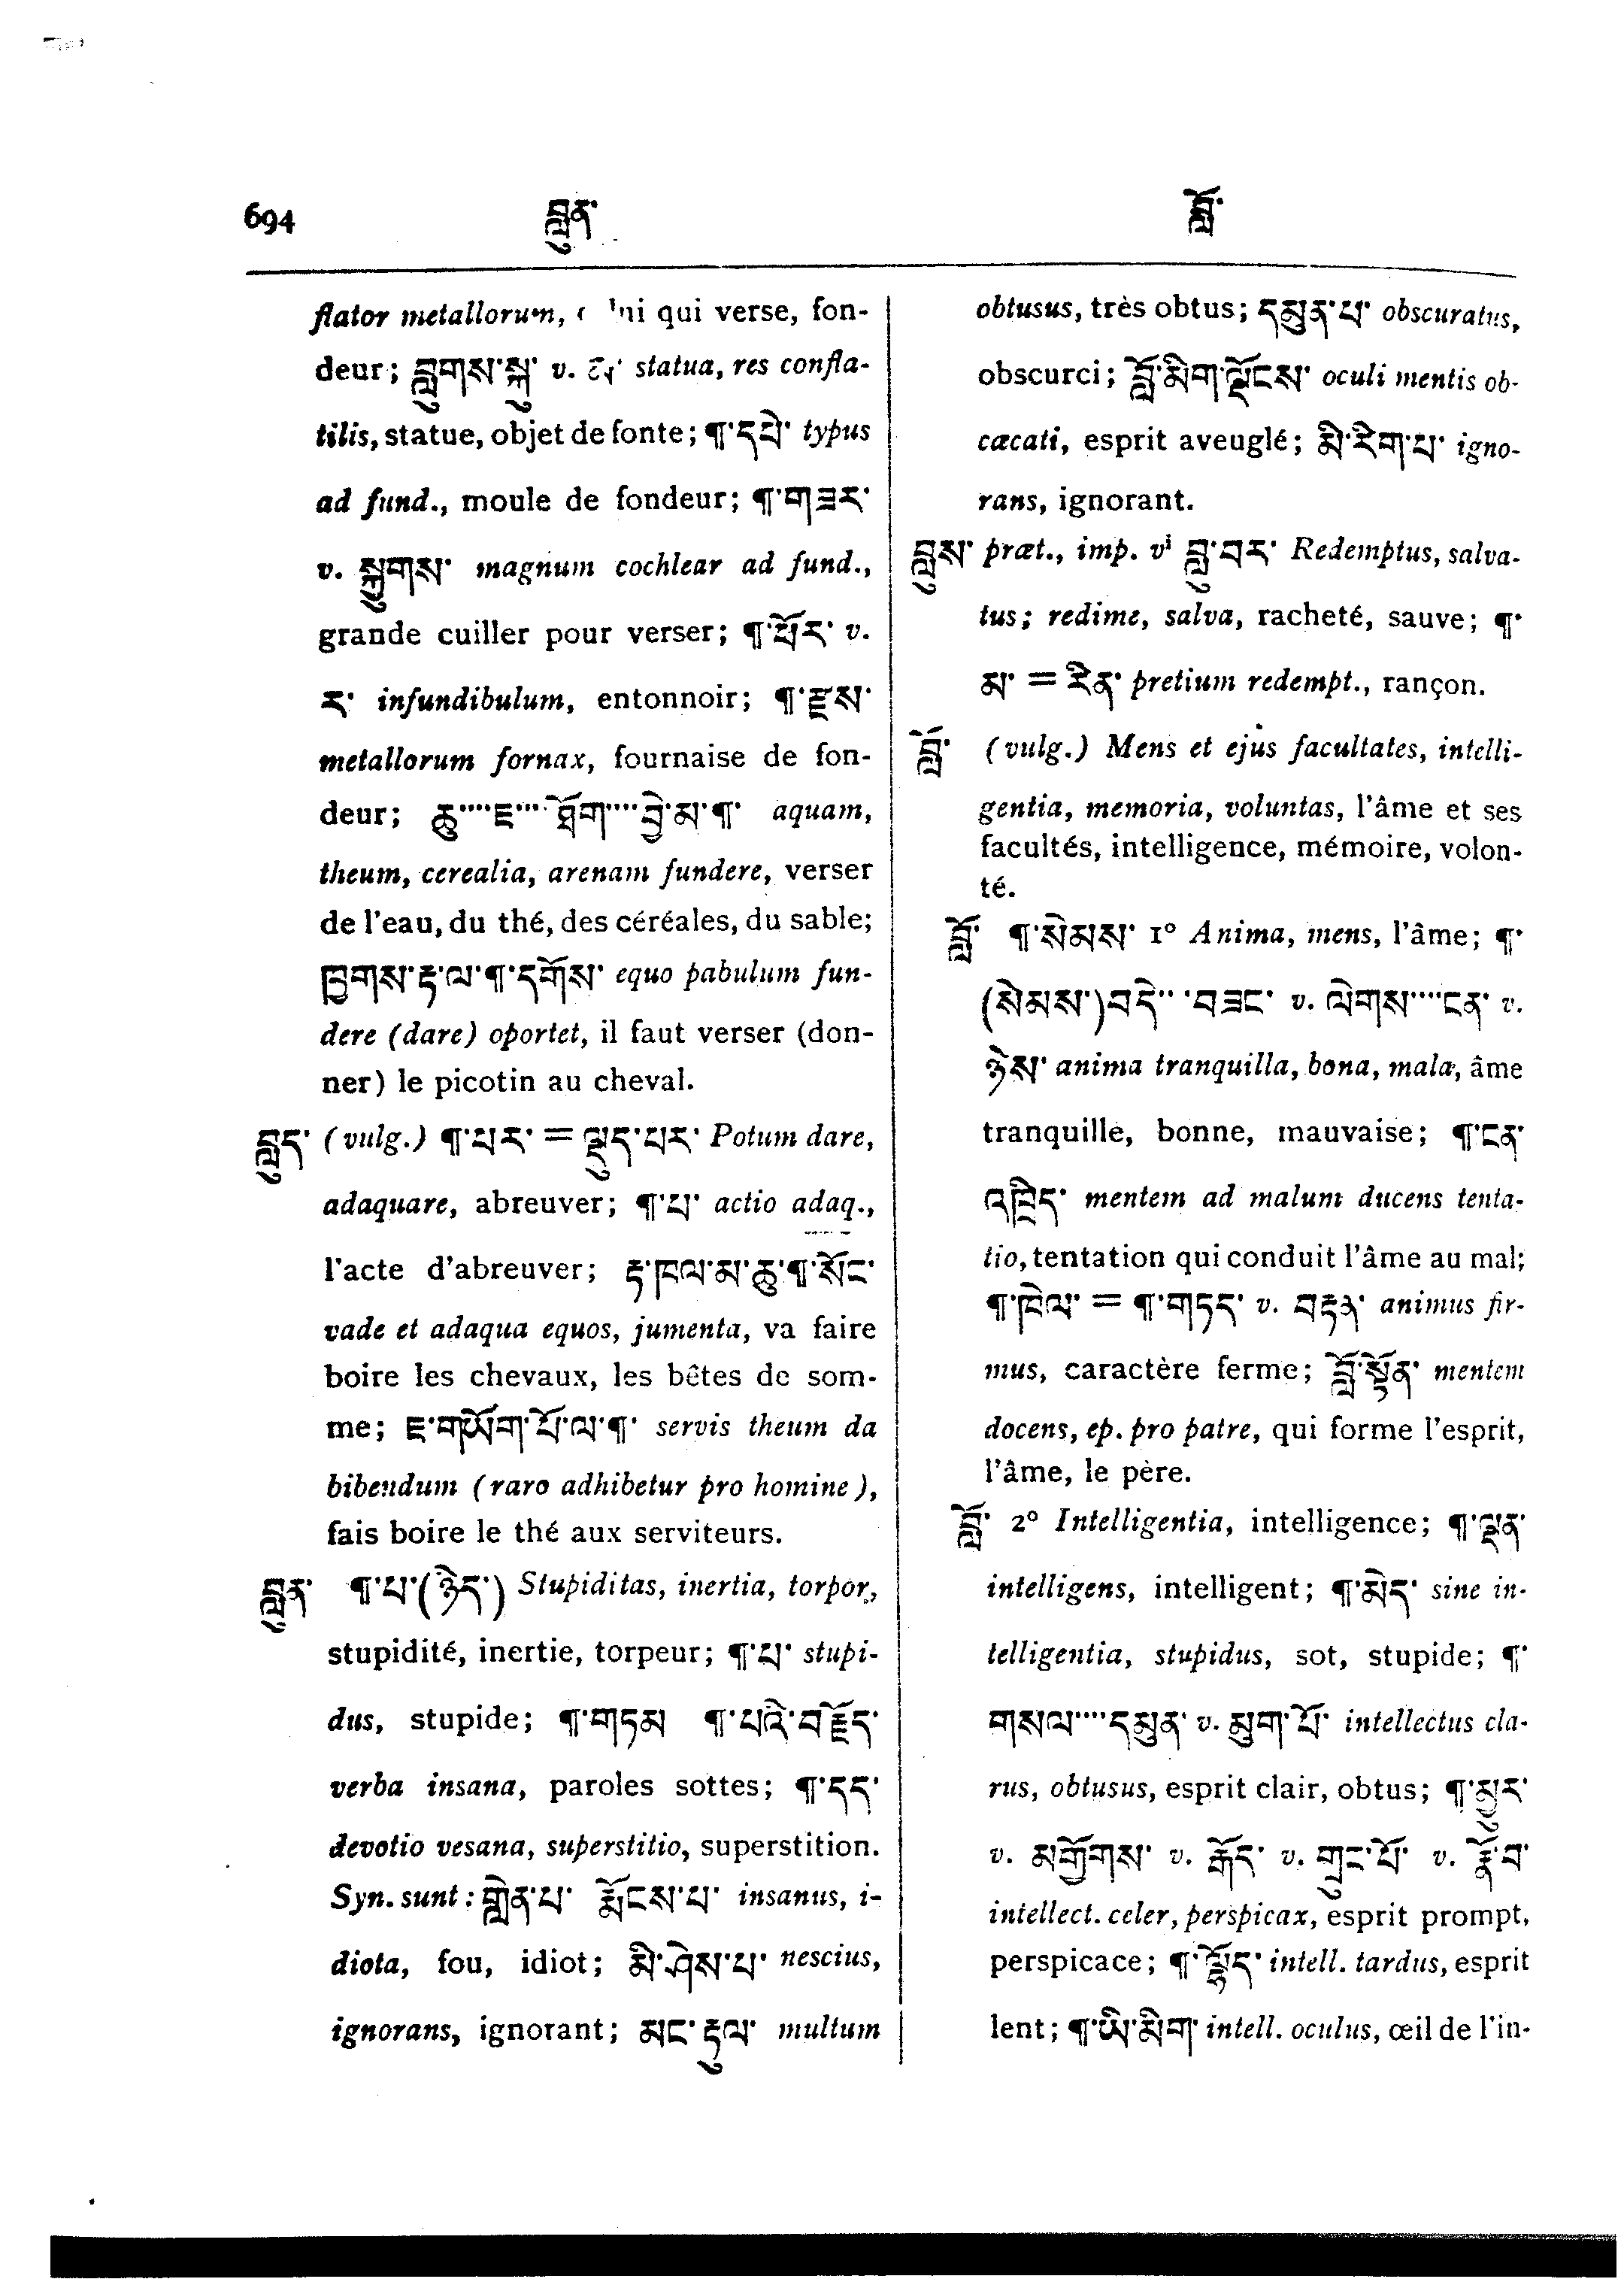 694 བླུན་ བློ་
flator metallorum, qui verse, fon-
deur; བླུགས་སྐུ་ v. statua, res confla-
tilis, statue, objet de fonte; ¶་དཔེ་ typus
ad fund., moule de fondeur; ¶་གཟར་
v. སྐྱུགས་ magnum cochlear ad fund.,
grande cuiller pour verser; ¶་ཕོར་ v.
ར་ infundibulum, entonnoir; ¶་རྫས་
metallorum fornax, fournaise de fon-
deur; ཆུ་···ཇ་···ཐོག་···བྱེ་མ་¶་ aquam,
theum, cerealia, arenam fundere, verser
de l'eau, du thé, des céréales, du sable;
ཁྲུགས་རྟ་ལ་¶་དགོས་ equo pabulum fun-
dere (dare) oportet, il faut verser (don-
ner) le picotin au cheval.
བླུད་ (vulg.) ¶་པར་ = ལྡུད་པར་ Potum dare,
adaquare, abreuver; ¶་པ་ actio adaq.,
l'acte d'abreuver; རྟ་ཁལ་མ་ཆུ་¶་སོང་
vade et adaqua equos, jumenta, va faire
boire les chevaux, les bêtes de som-
me; ཇ་གཡོག་པོ་ལ་¶་ servis theum da
bibendum (raro adhibetur pro homine),
fais boire le thé aux serviteurs.
བླུན་ ¶་པ་(ཉེད་) Stupiditas, inertia, torpor,
stupidité, inertie, torpeur; ¶་པ་ stupi-
dus, stupide; ¶་གཏམ ¶་པའི་བརྗོད་
verba insana, paroles sottes; ¶་དད་
devotio vesana, superstitio, superstition.
Syn. sunt: གླེན་པ་ རྨོངས་པ་ insanus, i-
diota, fou, idiot; མི་ཤེས་པ་ nescius,
ignorans, ignorant; མང་རྟུལ་ multum
obtusus, très obtus; དམུན་པ་ obscuratus,
obscurci; བློ་མིག་ལྡོངས་ oculi mentis ob-
cæcati, esprit aveuglé; མི་རིག་པ་ igno-
rans, ignorant.
བླུས་ præt., imp. vi བླུ་བར་ Redemptus, salva-
tus; redime, salva, racheté, sauve; ¶་
མ་ = རིན་ pretium redempt., rançon.
བློ་ (vulg.) Mens et ejus facultates, intelli-
gentia, memoria, voluntas, l'âme et ses
facultés, intelligence, mémoire, volon-
té.
བློ་ ¶་སེམས་ 1° Anima, mens, l'âme; ¶་
(སེམས་)བདེ་···བཟང་ v. ལེགས་···ངན་ v.
ཉེས་ anima tranquilla, bona, mala, âme
tranquille, bonne, mauvaise; ¶་ངན་
འཁྲིད་ mentem ad malum ducens tenta-
tio, tentation qui conduit l'âme au mal;
¶་ཁེལ་ = ¶་གཏད་ v. བརྟན་ animus fir-
mus, caractère ferme; བློ་སྟོན་ mentem
docens, ep. pro patre, qui forme l'esprit,
l'âme, le père.
བློ་ 2° Intelligentia, intelligence; ¶་ལྡན་
intelligens, intelligent; ¶་མེད་ sine in-
telligentia, stupidus, sot, stupide; ¶་
གསལ་···དམུན་ v. མུག་པོ་ intellectus cla-
rus, obtusus, esprit clair, obtus; ¶་མྱུར་
v. མགྱོགས་ v. རྒོད་ v. གྲུང་པོ་ v. རྣོ་བ་
intellect. celer, perspicax, esprit prompt,
perspicace; ¶་ལྷོད་ intell. tardus, esprit
lent; ¶་ཡི་མིག་ intell. oculus, œil de l'in-